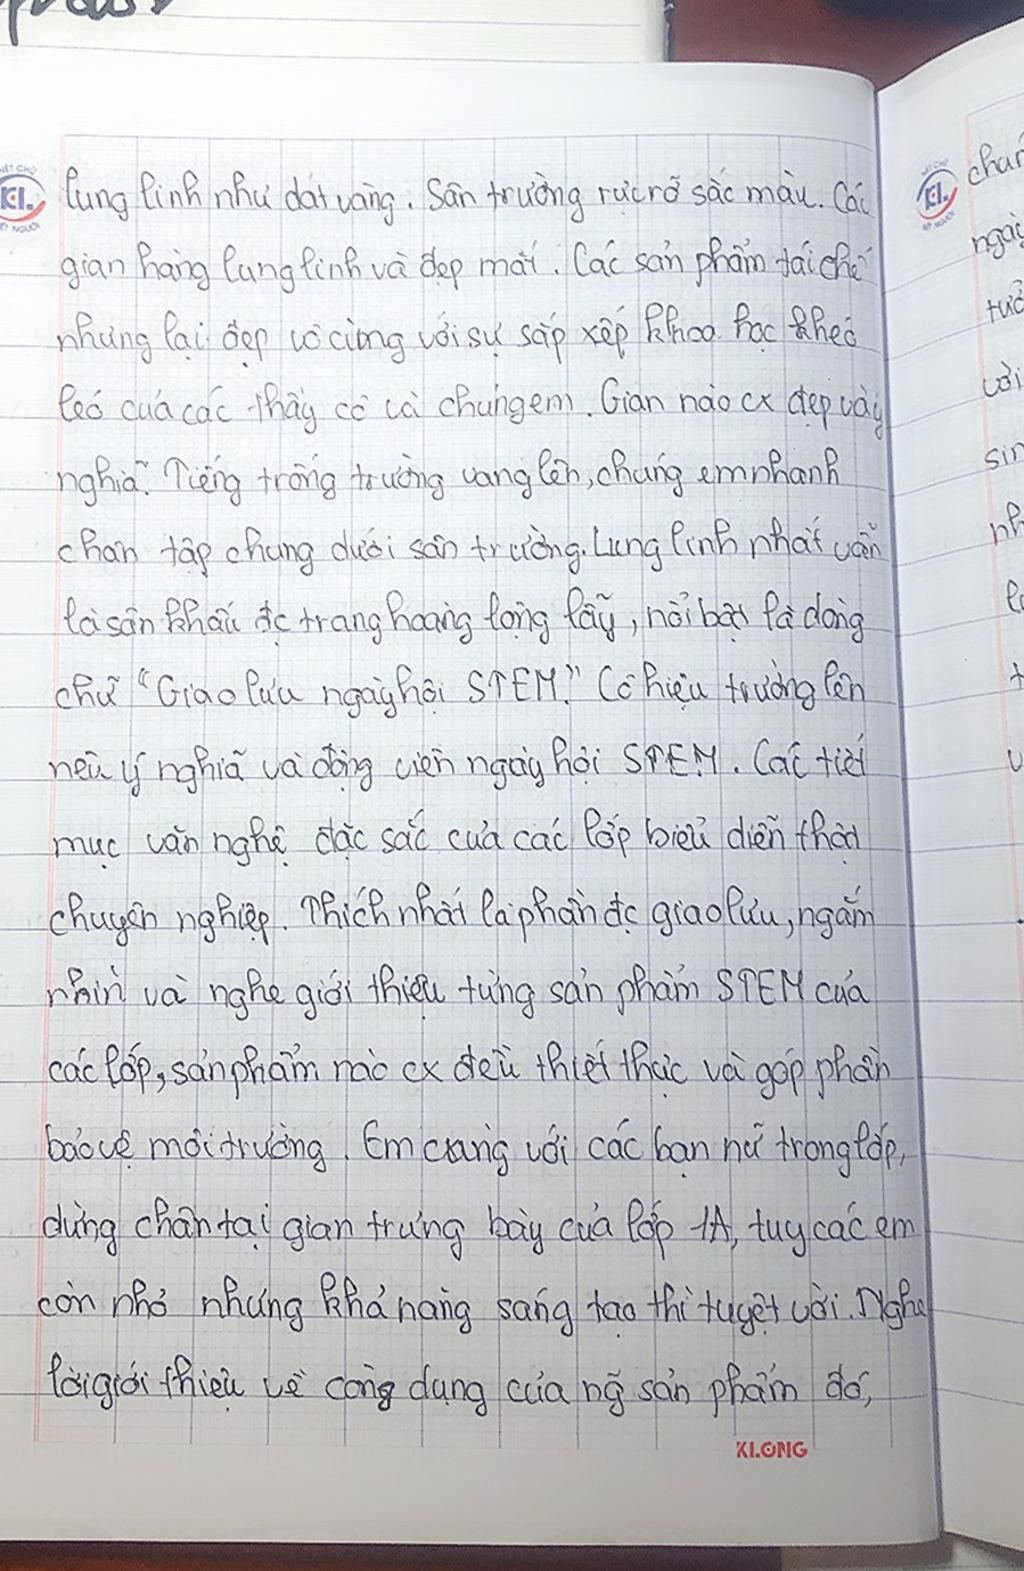 lung linh như dát vàng. Sân trường rực rỡ sắc màu. Các
gian hàng lung linh và đẹp mắt. Các sản phẩm tái chế
nhưng lại đẹp vô cùng với sự sắp xếp khoa học khéo
léo của các thầy cô và chúng em. Gian nào cx đẹp và ý
nghĩa. Tiếng trống trường vang lên, chúng em nhanh
chân tập chung dưới sân trường. Lung linh nhất vẫn
là sân khấu đc trang hoàng lộng lẫy, nổi bật là dòng
chữ "Giao lưu ngày hội STEM." Cô hiệu trưởng lên
nêu ý nghĩa và động viên ngày hội STEM. Các tiết
mục văn nghệ đặc sắc của các lớp biểu diễn thật
chuyên nghiệp. Thích nhất là phần đc giao lưu, ngắm
nhìn và nghe giới thiệu từng sản phẩm STEM của
các lớp, sản phẩm nào cx đều thiết thực và góp phần
bảo vệ môi trường. Em cùng với các bạn nữ trong lớp,
dừng chân tại gian trưng bày của lớp 1A, tuy các em
còn nhỏ nhưng khả năng sáng tạo thì tuyệt vời. Nghe
lời giới thiệu về công dụng của ng~ sản phẩm đó,
KLONG
KL
NÉT CHỮ
NẾT NGƯỜI
KL
ngày
sin